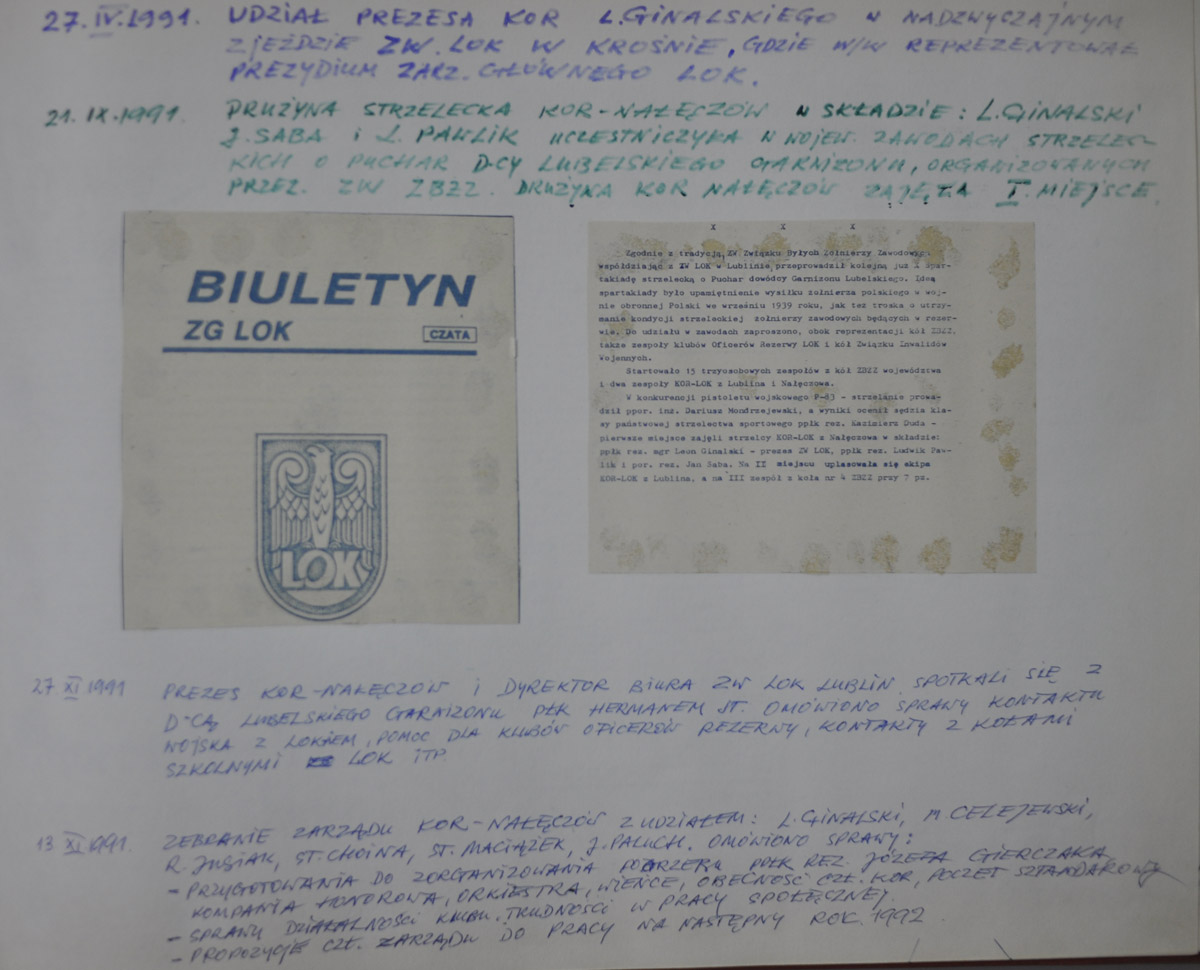 27.IV.1991. UDZIAŁ PREZESA KOR L.GINALSKIEGO W NADZWYCZAJNYM
ZJEŹDZIE ZW. LOK W KROŚNIE, GDZIE W/W REPREZENTOWAŁ
PREZYDIUM ZARZ. GŁÓWNEGO LOK.
21.IX.1991. DRUŻYNA STRZELECKA KOR-NAŁĘCZÓW W SKŁADZIE: L.GINALSKI
J.SABA i L. PAWLIK UCZESTNICZYŁA W WOJEW. ZAWODACH STRZELEC-
KICH O PUCHAR D-CY LUBELSKIEGO GARNIZONU, ORGANIZOWANYCH
PRZEZ. ZW ZBZZ. DRUŻYNA KOR NAŁĘCZÓW ZAJĘŁA I. MIEJSCE
BIULETYN
ZG LOK
CZATA
LOK
x x x
Zgodnie z tradycją ZW Związku Byłych Żołnierzy Zawodowych
współdziając z ZW LOK w Lublinie przeprowadził kolejną już X Spar-
takiadę strzelecką o Puchar dowódcy Garnizonu Lubelskiego. Ideą
spartakiady było upamiętnienie wysiłku żołnierza polskiego w woj-
nie obronnej Polski we wrześniu 1939 roku, jak też troska o utrzy-
manie kondycji strzeleckiej żołnierzy zawodowych będących w rezer-
wie. Do udziału w zawodach zaproszono, obok reprezentacji kół ZBZZ,
także zespoły klubów Oficerów Rezerwy LOK i kół Związku Inwalidów
Wojennych.
Startowało 15 trzyosobowych zespołów z kół ZBZZ województwa
i dwa zespoły KOR-LOK z Lublina i Nałęczowa.
W konkurencji pistoletu wojskowego P-83 - strzelanie prowa-
dził ppor. inż. Dariusz Mondrzejewski, a wyniki ocenił sędzia kla-
sy państwowej strzelectwa sportowego ppłk rez. Kazimierz Duda -
pierwsze miejsce zajęli strzelcy KOR-LOK z Nałęczowa w składzie:
ppłk rez. mgr Leon Ginalski - prezes ZW LOK, ppłk rez. Ludwik Paw-
lik i por. rez. Jan Saba. Na II miejscu uplasowała się ekipa
KOR-LOK z Lublina, a na III zespół z koła nr 4 ZBZZ przy 7 pz.
27.XI 1991 PREZES KOR-NAŁĘCZÓW i DYREKTOR BIURA ZW LOK LUBLIN SPOTKALI SIĘ Z
D-CĄ LUBELSKIEGO GARNIZONU PŁK HERMANEM ST. OMÓWIONO SPRAWY KONTAKTU
WOJSKA Z LOKIEM, POMOC DLA KLUBÓW OFICERÓW REZERWY, KONTAKTY Z KOŁAMI
SZKOLNYMI LOK iTP
13 XI 1991. ZEBRANIE ZARZĄDU KOR-NAŁĘCZÓW Z UDZIAŁEM: L.GINALSKI, M CELEJEWSKI,
R. JUSIAK, ST. CHOINA, ST. MACIĄŻEK, J. PALUCH. OMÓWIONO SPRAWY:
- PRZYGOTOWANIA DO ZORGANIZOWANIA POGRZEBU PPŁK REZ. JÓZEFA GIERCZAKA
KOMPANIA HONOROWA, ORKIESTRA, WIEŃCE, OBECNOŚĆ CZŁ. KOR, POCZET SZTANDAROWY
- SPRAWY DZIAŁALNOŚCI KLUBU. TRUDNOŚCI W PRACY SPOŁECZNEJ.
- PROPOZYCJE CZŁ. ZARZĄDU DO PRACY NA NASTĘPNY ROK 1992